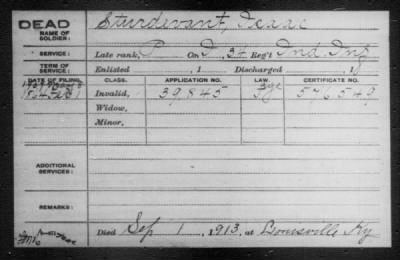 DEAD
NAME OF SOLDIER: Sturdivant, Isaac
SERVICE: Late rank, P Co D, 34 Reg't Ind. Inf
TERM OF SERVICE: Enlisted , 1 Discharged , 1
DATE OF FILING. CLASS. APPLICATION NO. LAW. CERTIFICATE NO.
Invalid, 39845 576549
Widow,
Minor,
ADDITIONAL SERVICES:
REMARKS:
Died Sep 1, 1913, at Louisville Ky